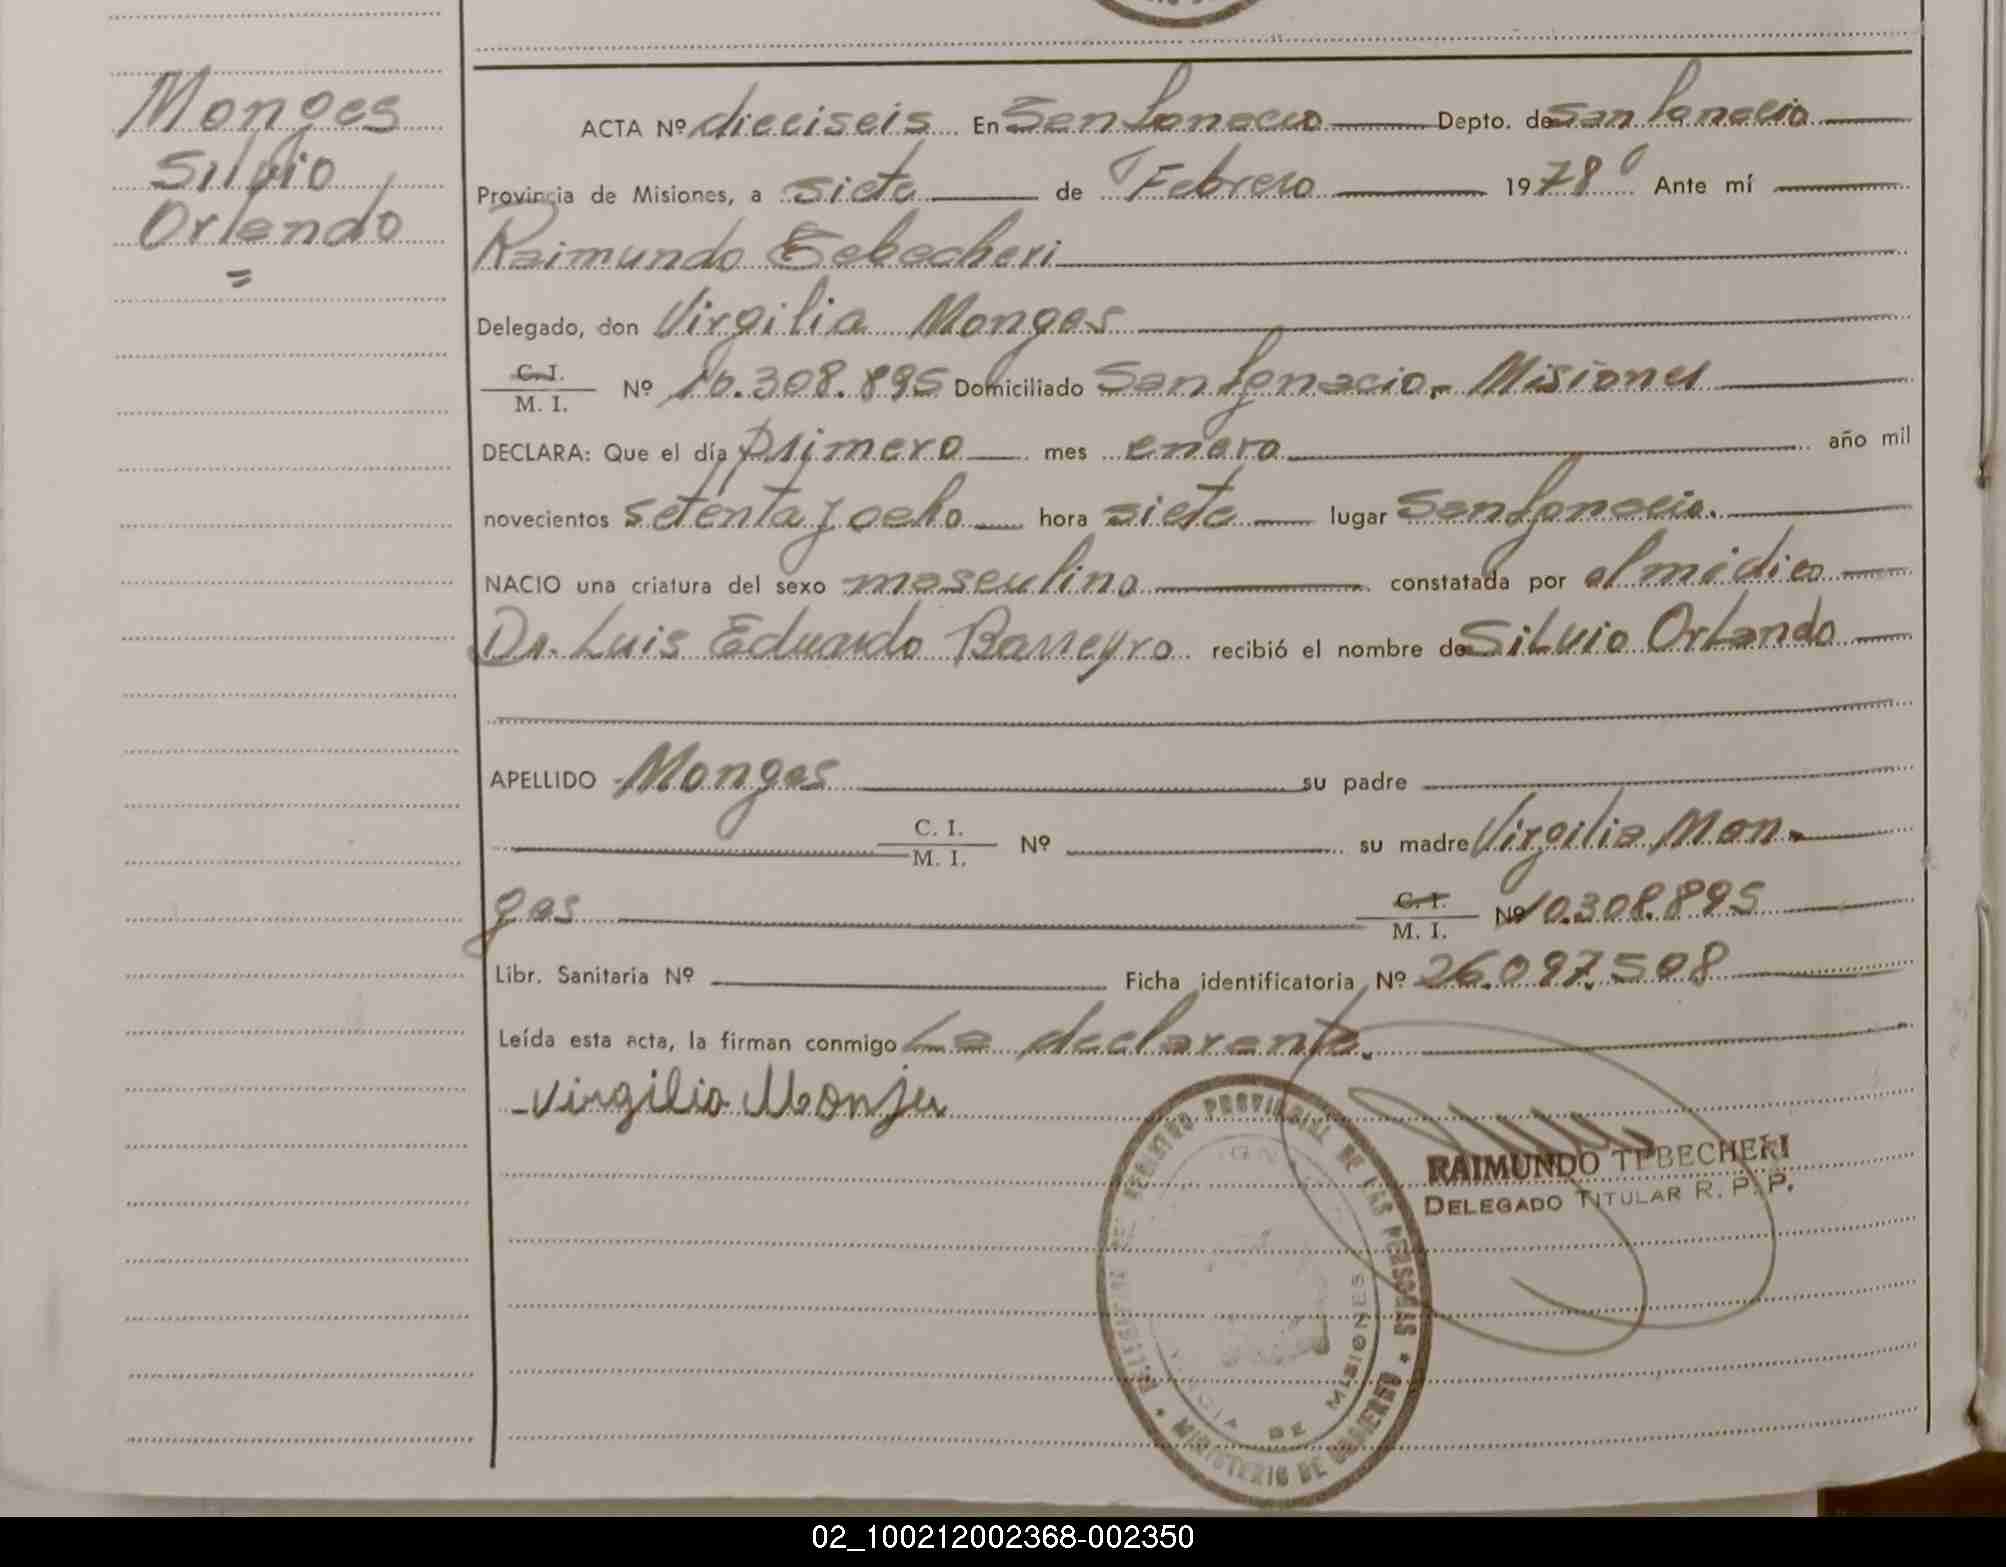 Monges
Silvio
Orlando
=
ACTA Nº dieciseis En San Ignacio Depto. de San Ignacio
Provincia de Misiones, a siete de Febrero 1978 Ante mí
Raimundo Tebecheri
Delegado, don Virgilia Monges
C. I.
M. I. Nº 10.308.895 Domiciliado San Ignacio. Misiones
DECLARA: Que el día primero mes enero año mil
novecientos setenta y ocho hora siete lugar San Ignacio.
NACIO una criatura del sexo masculino constatada por el médico
Dr. Luis Eduardo Barreyro recibió el nombre de Silvio Orlando
APELLIDO Monges su padre
C. I.
M. I. Nº su madre Virgilia Mon-
ges C. I.
M. I. Nº 10.308.895
Libr. Sanitaria Nº Ficha identificatoria Nº 26.097.508
Leída esta acta, la firman conmigo La declarante.
Virgilia Monjes
RAIMUNDO TEBECHERI
DELEGADO TITULAR R. P. P.
REGISTRO PROVINCIAL DE LAS PERSONAS
MINISTERIO DE GOBIERNO
DE MISIONES
02_100212002368-002350